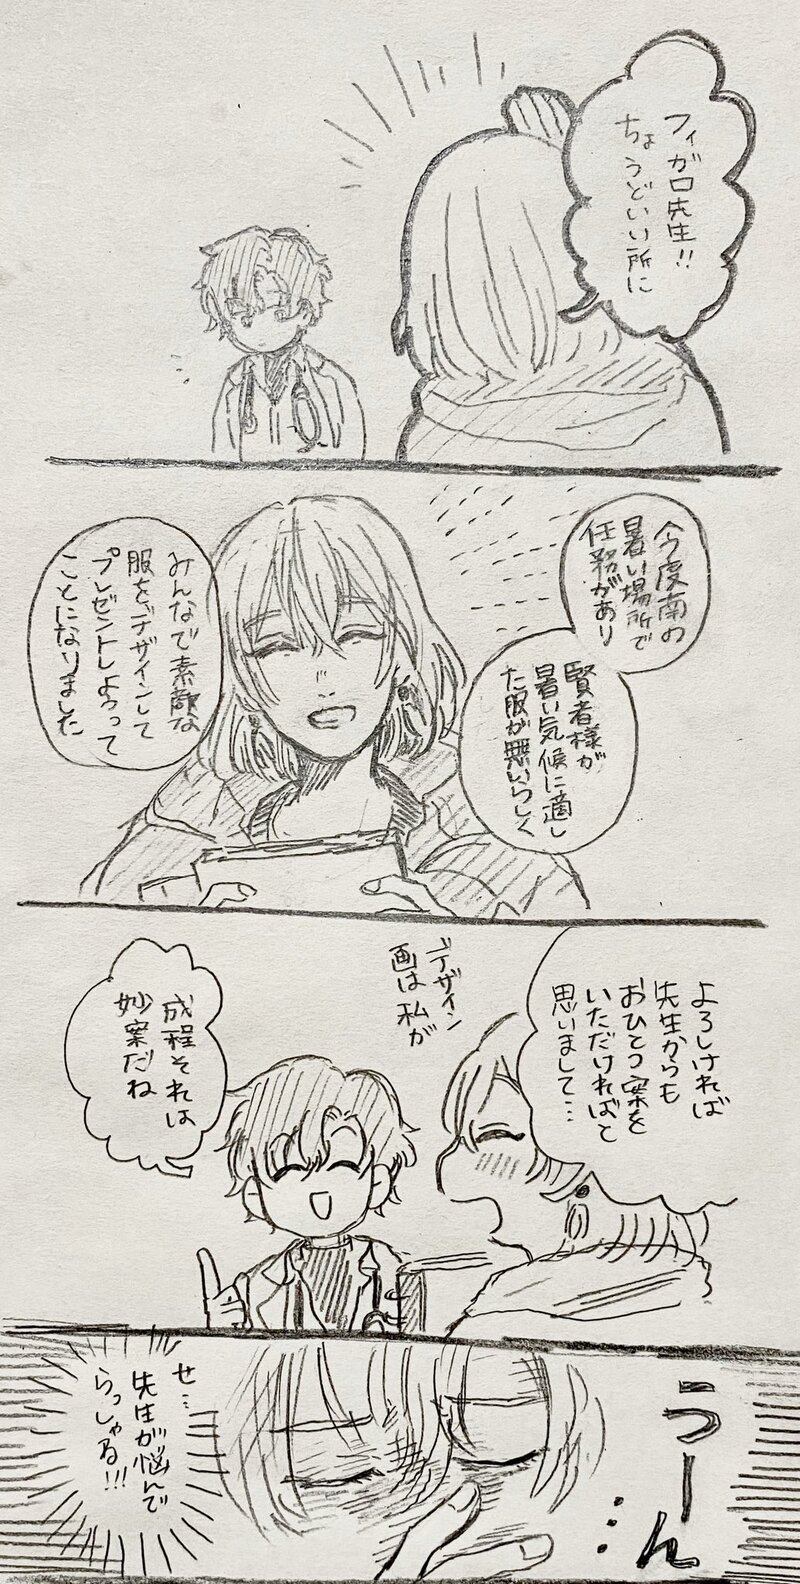 フィガロ先生!!
ちょうどいい所に
今度南の
暑い場所で
任務があり
賢者様が
暑い気候に適し
た服が無いらしく
みんなで素敵な
服をデザインして
プレゼントしようって
ことになりました
よろしければ
先生からも
おひとつ案を
いただければと
思いまして…
デザイン
画は私が
成程それは
妙案だね
うーん…
せ…
先生が悩んで
らっしゃる!!!